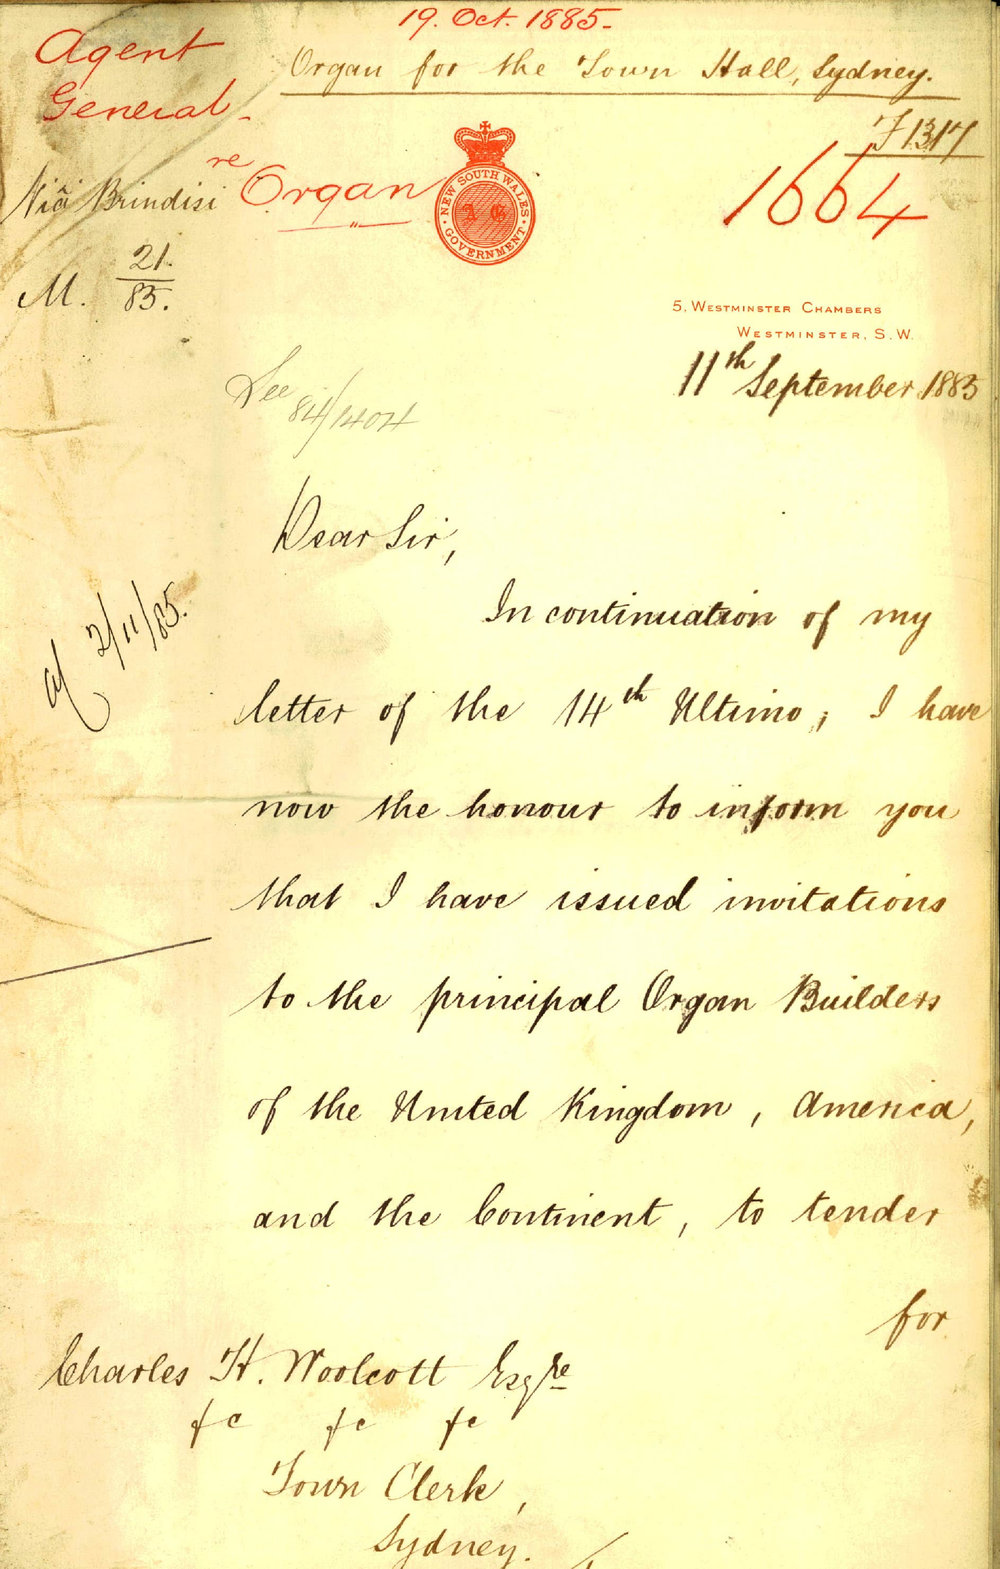 19. Oct. 1885.
Agent
General.
re Organ
Organ for the Town Hall, Sydney.
F1317
1664
Viâ Brindisi
M. 21/85.
NEW SOUTH WALES
A G
GOVERNMENT
5, WESTMINSTER CHAMBERS
WESTMINSTER, S.W.
11th September 1885
See 84/1404
Dear Sir,
2/11/85.
In continuation of my
letter of the 14th Ultimo, I have
now the honour to inform you
that I have issued invitations
to the principal Organ Builders
of the United Kingdom, America,
and the Continent, to tender
for
Charles H. Woolcott Esqre
&c &c &c
Town Clerk,
Sydney.